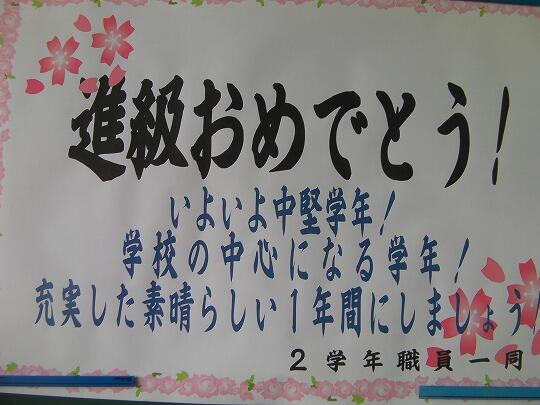 進級おめでとう!
いよいよ中堅学年!
学校の中心になる学年!
充実した素晴らしい1年間にしましょう!
2学年職員一同